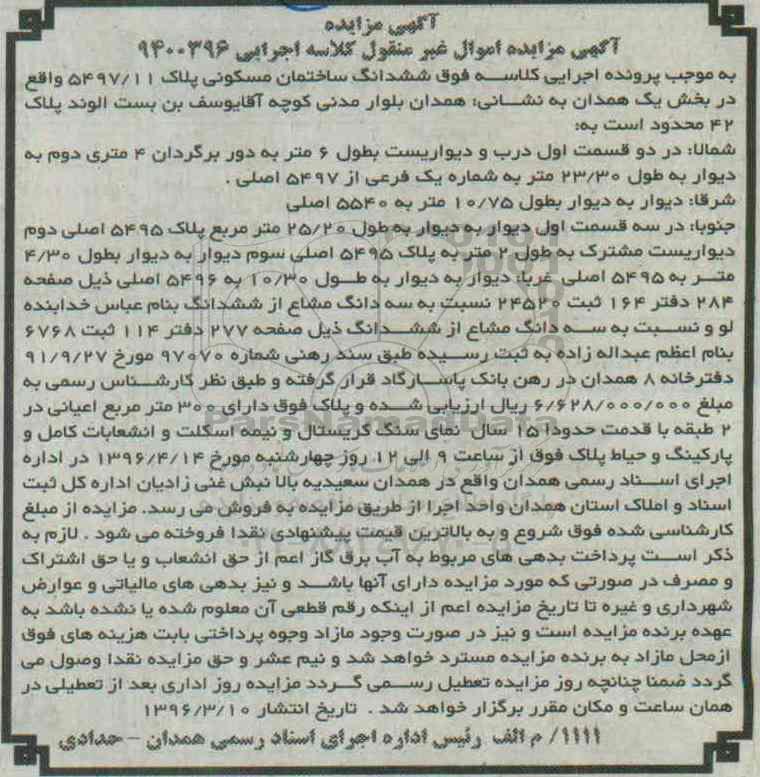 آگهی مزایده
آگهی مزایده اموال غیر منقول کلاسه اجرایی ۹۴۰۰۳۹۶
به موجب پرونده اجرایی کلاسه فوق ششدانگ ساختمان مسکونی پلاک ۵۴۹۷/۱۱ واقع
در بخش یک همدان به نشانی: همدان بلوار مدنی کوچه آقایوسف بن بست الوند پلاک
۴۲ محدود است به:
شمالا: در دو قسمت اول درب و دیواریست بطول ۶ متر به دور برگردان ۴ متری دوم به
دیوار به طول ۲۳/۳۰ متر به شماره یک فرعی از ۵۴۹۷ اصلی .
شرقا: دیوار به دیوار بطول ۱۰/۷۵ متر به ۵۵۴۰ اصلی
جنوبا: در سه قسمت اول دیوار به دیوار به طول ۲۵/۲۰ متر مربع پلاک ۵۴۹۵ اصلی دوم
دیواریست مشترک به طول ۲ متر به پلاک ۵۴۹۵ اصلی سوم دیوار به دیوار بطول ۴/۳۰
متر به ۵۴۹۵ اصلی غربا: دیوار به دیوار به طول ۱۰/۳۰ به ۵۴۹۶ اصلی ذیل صفحه
۲۸۴ دفتر ۱۶۴ ثبت ۲۴۵۲۰ نسبت به سه دانگ مشاع از ششدانگ بنام عباس خدابنده
لو و نسبت به سه دانگ مشاع از ششدانگ ذیل صفحه ۲۷۷ دفتر ۱۱۴ ثبت ۶۷۶۸
بنام اعظم عبداله زاده به ثبت رسیده طبق سند رهنی شماره ۹۷۰۷۰ مورخ ۹۱/۹/۲۷
دفترخانه ۸ همدان در رهن بانک پاسارگاد قرار گرفته و طبق نظر کارشناس رسمی به
مبلغ ۶/۶۲۸/۰۰۰/۰۰۰ ریال ارزیابی شده و پلاک فوق دارای ۳۰۰ متر مربع اعیانی در
۲ طبقه با قدمت حدودا ۱۵ سال نمای سنگ کریستال و نیمه اسکلت و انشعابات کامل و
پارکینگ و حیاط پلاک فوق از ساعت ۹ الی ۱۲ روز چهارشنبه مورخ ۱۳۹۶/۴/۱۴ در اداره
اجرای اسناد رسمی همدان واقع در همدان سعیدیه بالا نبش غنی زادیان اداره کل ثبت
اسناد و املاک استان همدان واحد اجرا از طریق مزایده به فروش می رسد. مزایده از مبلغ
کارشناسی شده فوق شروع و به بالاترین قیمت پیشنهادی نقدا فروخته می شود . لازم به
ذکر است پرداخت بدهی های مربوط به آب برق گاز اعم از حق انشعاب و یا حق اشتراک
و مصرف در صورتی که مورد مزایده دارای آنها باشد و نیز بدهی های مالیاتی و عوارض
شهرداری و غیره تا تاریخ مزایده اعم از اینکه رقم قطعی آن معلوم شده یا نشده باشد به
عهده برنده مزایده است و نیز در صورت وجود مازاد وجوه پرداختی بابت هزینه های فوق
ازمحل مازاد به برنده مزایده مسترد خواهد شد و نیم عشر و حق مزایده نقدا وصول می
گردد ضمنا چنانچه روز مزایده تعطیل رسمی گردد مزایده روز اداری بعد از تعطیلی در
همان ساعت و مکان مقرر برگزار خواهد شد . تاریخ انتشار ۱۳۹۶/۳/۱۰
۱۱۱۱/ م الف رئیس اداره اجرای اسناد رسمی همدان - حدادی